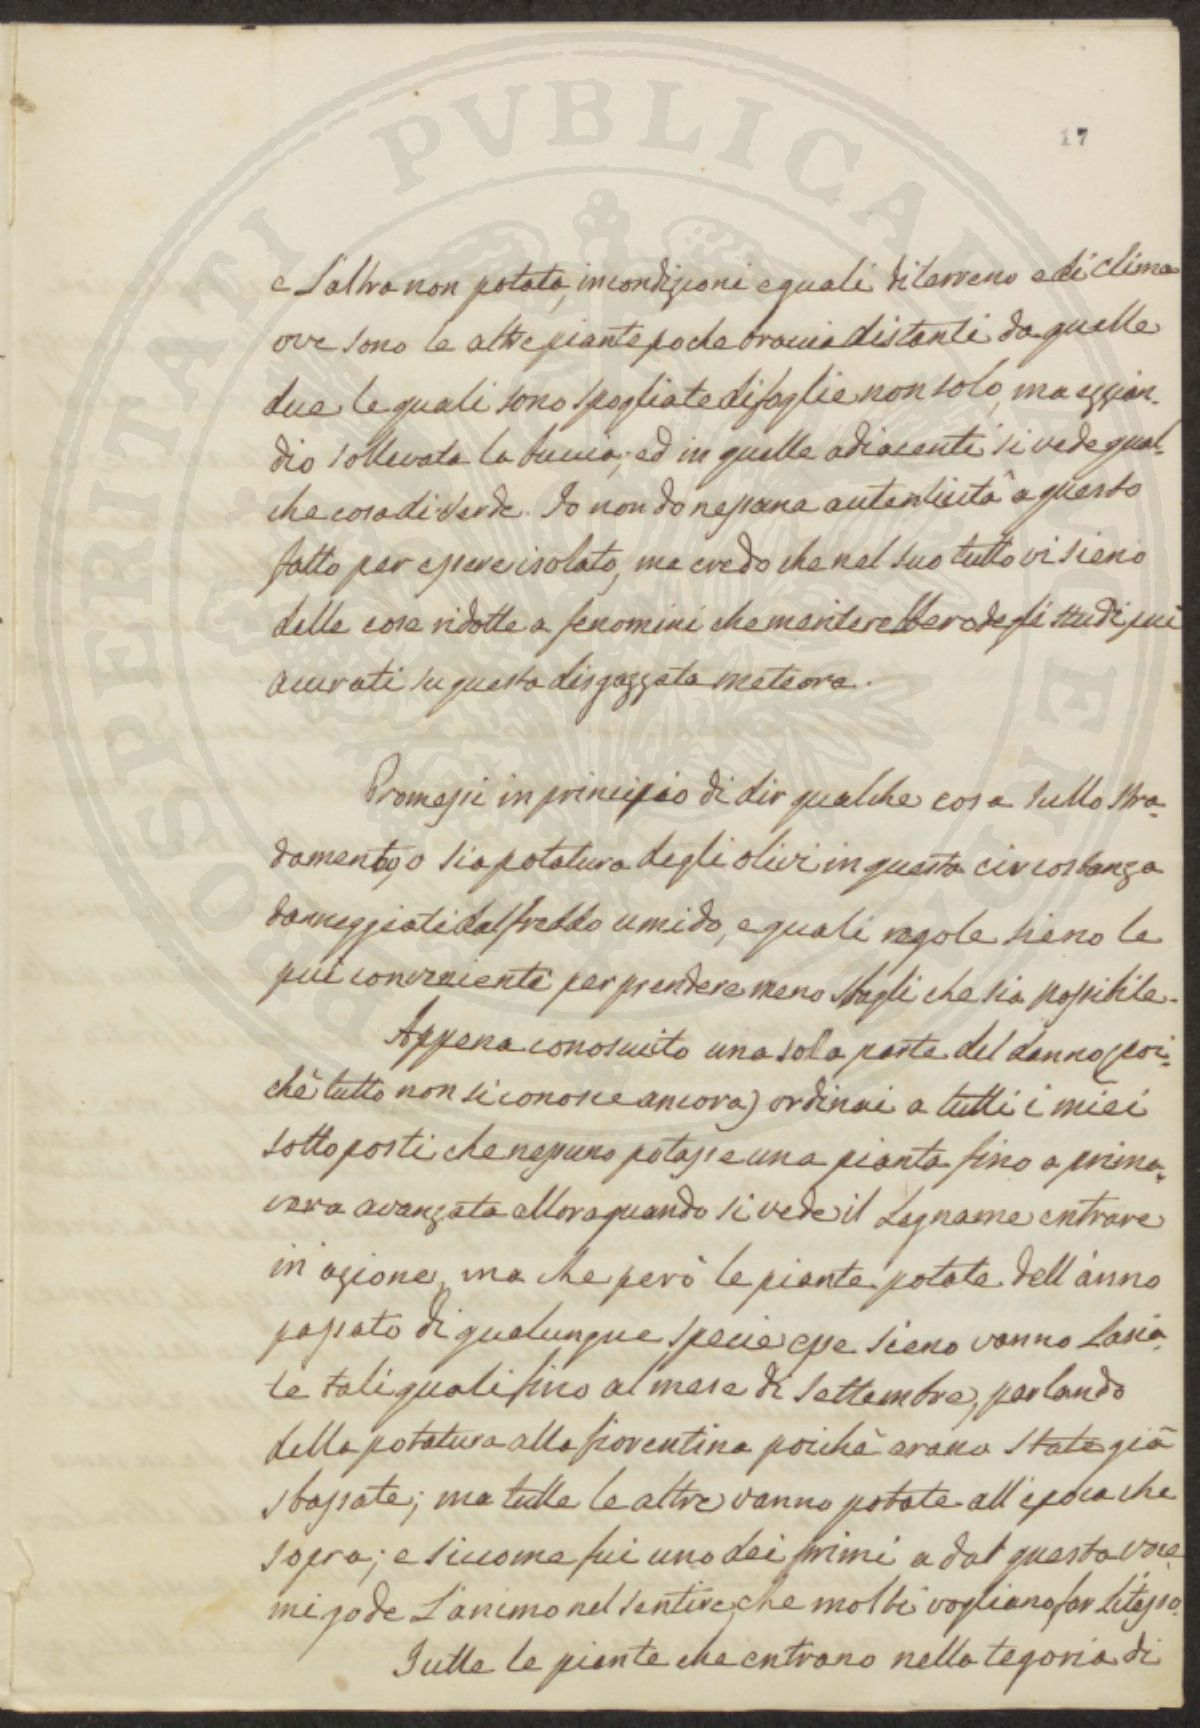 17
e L'altra non potata, in condizioni eguali di terreno e di clima
ove sono le altre piante poche braccia distanti da quelle
due le quali sono spogliate di foglie non solo, ma ezzian-
dio sollevata la buccia; ed in quelle adiacenti si vede qual-
che cosa di verde. Io non do nessuna autenticità a questo
fatto per essere isolato, ma credo che nel suo tutto vi sieno
delle cose ridotte a fenomini che meriterebbero degli studi più
accurati su questa disgazzata meteora.
Promessi in principio di dir qualche cosa sullo stra-
damento, o sia potatura degli olivi in questa circostanza
danneggiati dal freddo umido, e quali regole sieno le
più convenienti per prendere meno sbagli che sia possibile.
Appena conosciuto una sola parte del danno (poi-
chè tutto non si conosce ancora) ordinai a tutti i miei
sottoposti che nessuno potasse una pianta fino a prima-
vera avanzata allora quando si vede il Legname entrare
in azione, ma che però le piante potate dell'anno
passato di qualunque specie esse sieno vanno Lascia-
te tali quali fino al mese di Settembre, parlando
della potatura alla fiorentina poichè erano state già
sbassate; ma tutte le altre vanno potate all'epoca che
sopra; e siccome fui uno dei primi a dal questa voce
mi gode L'animo nel sentire, che molti vogliano far Listesso.
Tutte le piante che entrano nella tegoria di
PROSPERITATI PVBLICAE AVGENDAE